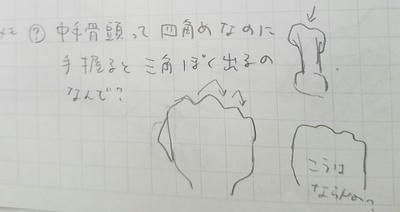 メモ ? 中手骨頭って四角めなのに
手握ると三角ぽく出るの
なんで?
こうは
ならんの?